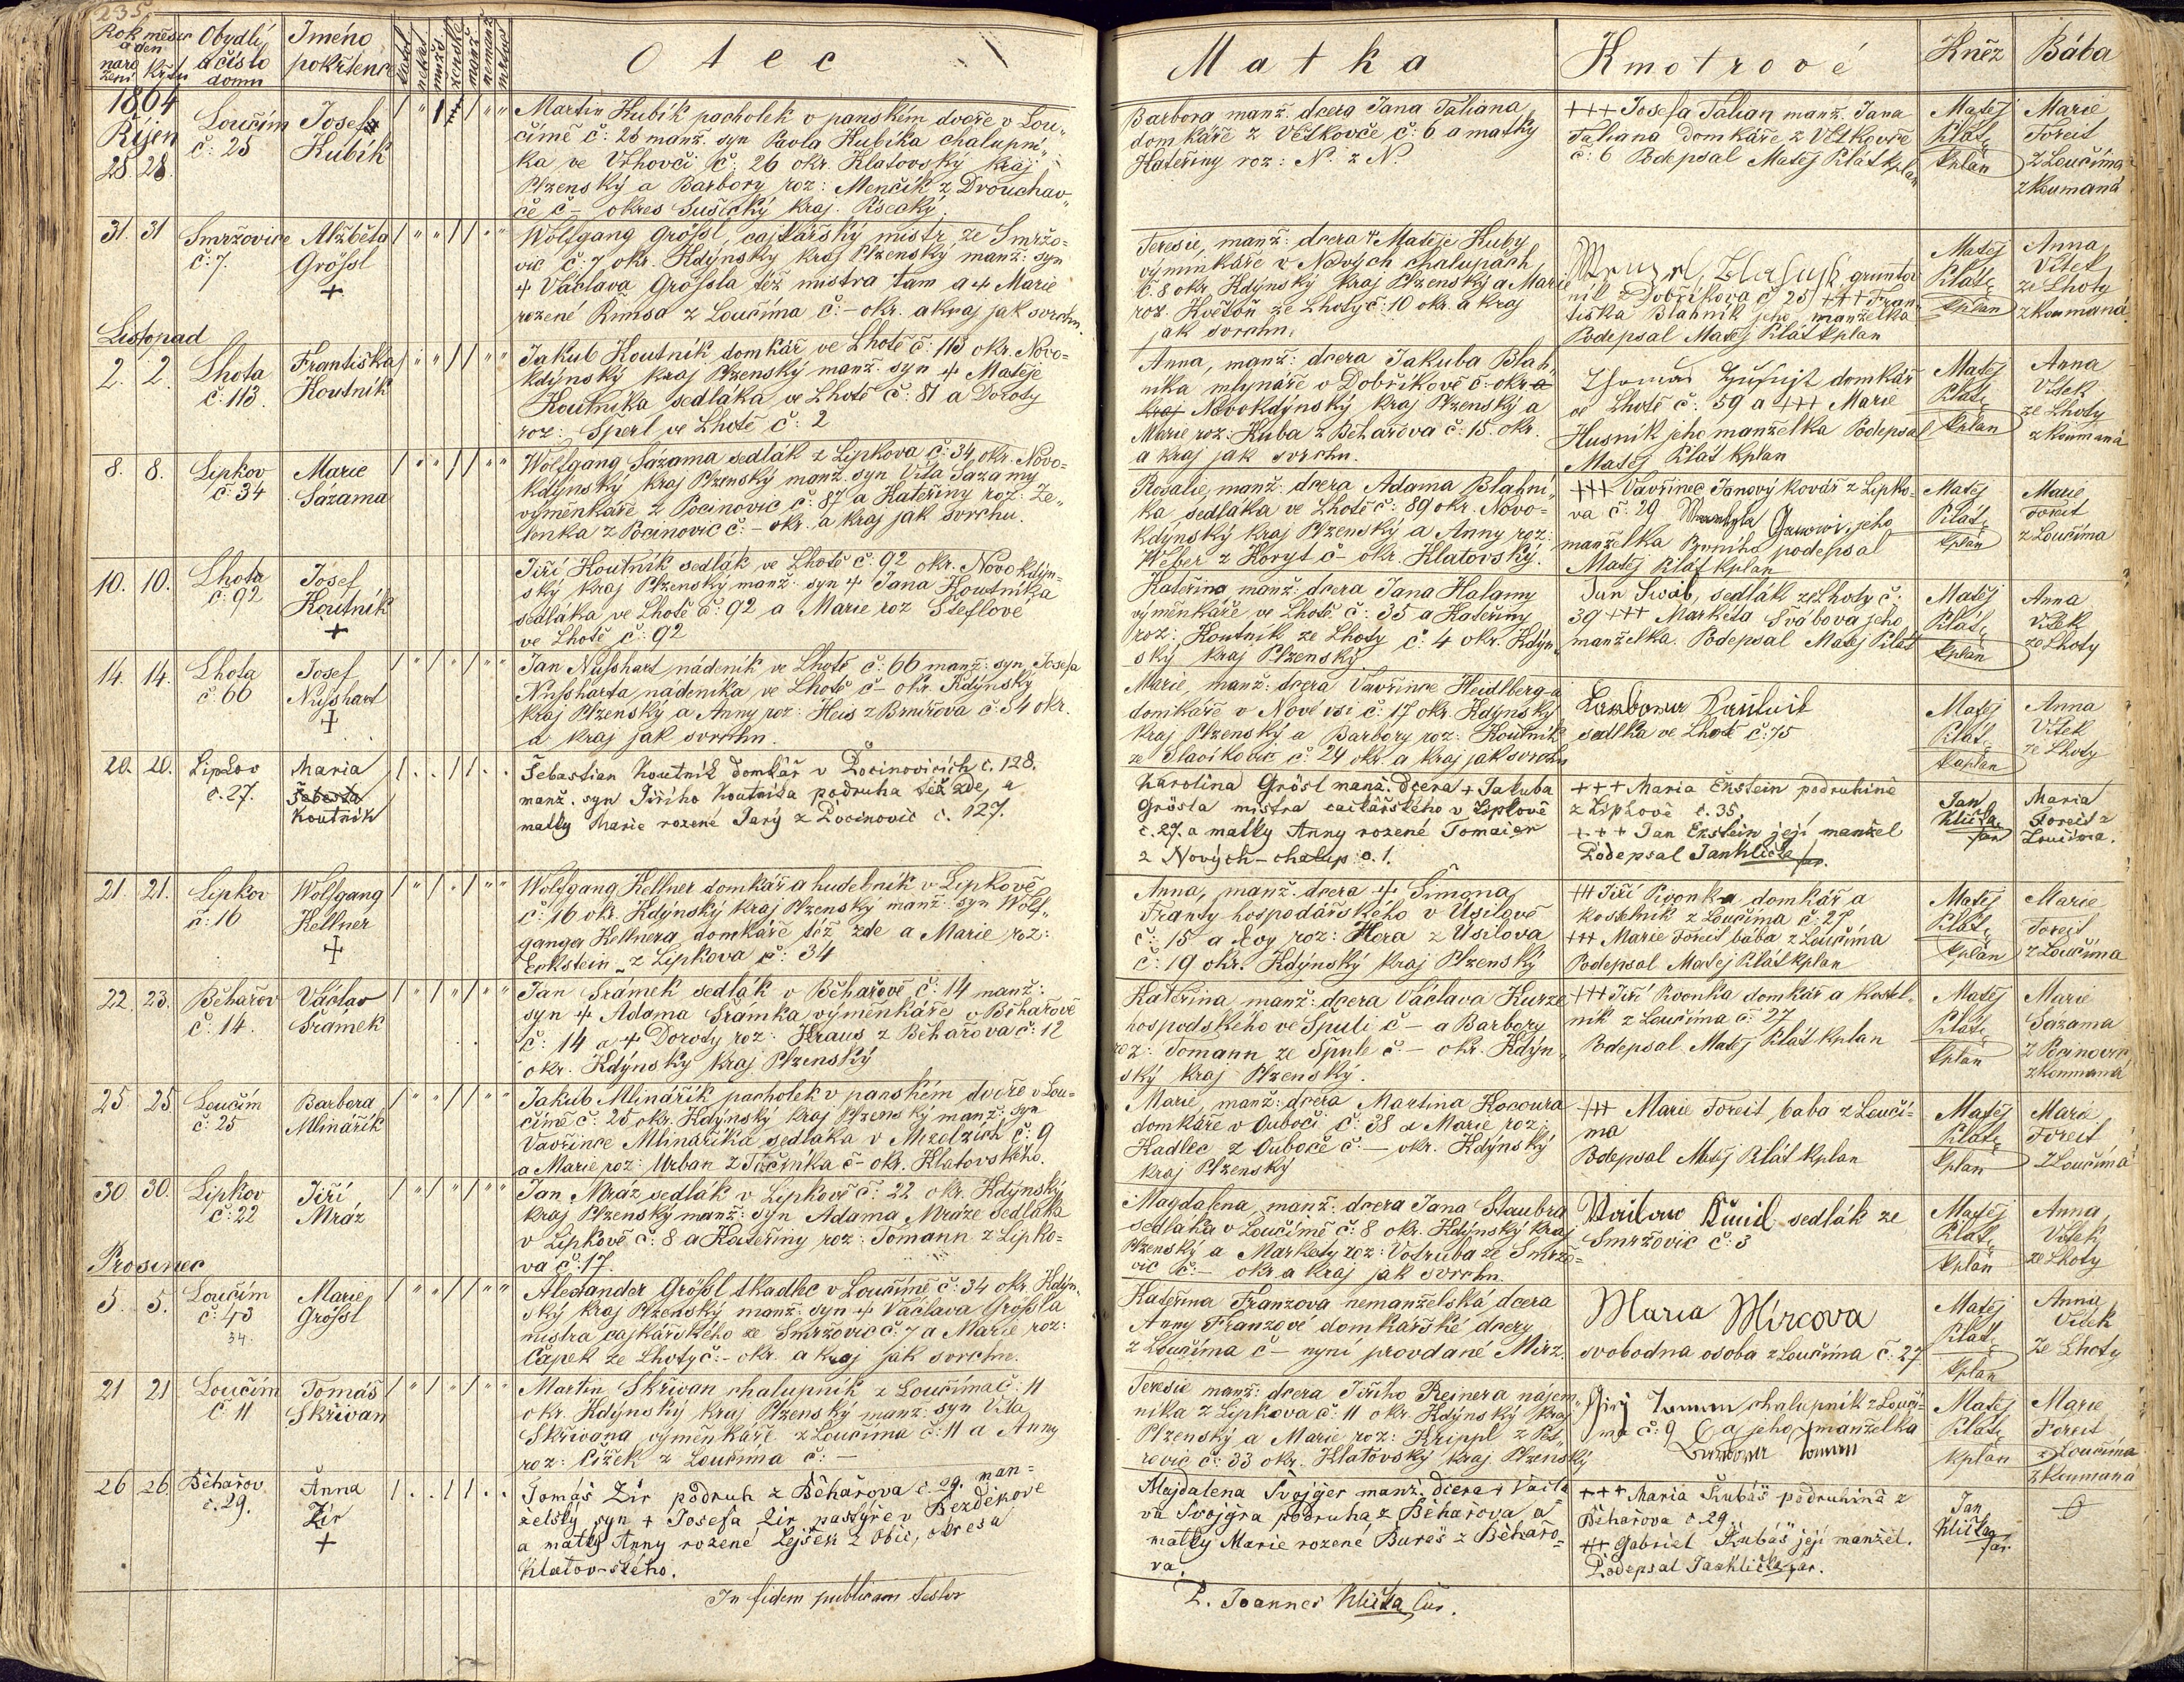 235.
Rok měsíc a den
naro zení
Křtu
Obydlí a číslo domu
Jméno pokřtence
Otec
Matka
Kmotrové
Kněz
Bába
1864
Říjen
28. 28.
Loučím
č: 25
Josef
Kubík
Martin Kubík pacholek v panském dvoře v Lou„
čímě č: 25 manž. syn Pavla Kubíka chalupní„
ka ve Vrhovči č: 26 okr. Klatovský kraj
Plzenský a Barbory roz: Menčík z Drouchav„
če č – okres Sušický kraj. Písecký.
Barbora manž. dcera Jana Taliana
domkáře z Větkovče č: 6 a matky
Kateřiny roz: N. z N.
+++ Josefa Talian manž. Jana
Taliana domkáře z Větkovče
č: 6 Podepsal Matěj Plát kplan
Matěj
Plát
kplán
Marie
Foreit
z Loučíma
zkoumaná
31. 31
Smržovice
č: 7.
Alžběta
Grössl
+
Wolfgang Grössl, cajkářský mistr ze Smržo=
vic č: 7 okr. Kdýnský kraj Plzenský manž: syn
+ Václava Grössla též mistra tam a + Marie
rozené Rimsa z Loučíma č: – okr. a kraj jak svrchu.
Teresie, manž: dcera + Matěje Kuby
výminkáře v Nových chalupách
č. 8 okr. Kdýnský kraj Plzenský a Marie
roz. Květoň ze Lhoty č: 10 okr. a kraj
jak svrchu.
gruntov
ník z Dobříkova č 25 +++ Fran„
tiska Blahník jeho manželka
Podepsal Matěj Plát kplan
Matěj
Plát
kplán
Anna
Vítek
ze Lhoty
zkoumaná
Listopad
2. 2.
Lhota
č: 113.
Františka
Koutník
Jakub Koutník domkář ve Lhotě č: 113 okr. Novo=
kdýnský kraj Plzenský manž. syn + Matěje
Koutníka sedláka ve Lhotě č: 81 a Doroty
roz: Šperl ve Lhotě č: 2
Anna, manž: dcera Jakuba Blah„
níka mlynáře v Dobříkově č: – okr a
kraj Novokdýnský kraj Plzenský a
Marie roz: Kuba z Běhařova č: 15. okr.
a kraj jak svrchu.
domkář
ve Lhotě č: 59 a +++ Marie
Husník jeho manželka Podepsal
Matěj Plát kplan
Matěj
Plát
kplán
Anna
Vítek
ze Lhoty
zkoumaná
8. 8.
Lipkov
č: 34
Marie
Sázama
Wolfgang Sázama sedlák z Lipkova č: 34 okr. Novo=
kdýnský kraj Plzenský manž. syn Víta Sázamy
výměnkáře z Pocinovic č: 87 a Kateřiny roz: Ze„
lenka z Pocinovic č: – okr. a kraj jak svrchu.
Rosalie, manž: dcera Adama Blahní„
ka sedláka ve Lhotě č: 89 okr. Novo=
kdýnský kraj Plzenský a Anny roz:
Weber z Koryt č – okr. Klatovský.
+++ Vavřinec Janový kovář z Lipko=
va č: 29 jeho
manželka podepsal
Matěj Plát kplan
Matěj
Plát
kplán
Marie
Foreit
z Loučíma
10. 10.
Lhota
č: 92
Josef
Koutník
+
Jiří Koutník sedlák ve Lhotě č: 92 okr. Novokdýn=
ský kraj Plzenský manž. syn + Jana Koutníka
sedláka ve Lhotě č: 92 a Marie roz Šteflové
ve Lhotě č: 92
Kateřina manž: dcera Jana Halamy
výměnkáře ve Lhotě č: 35 a Kateřiny
roz: Koutník ze Lhoty č: 4 okr. Kdýn„
ský kraj Plzenský.
Jan Swáb, sedlák ze Lhoty č:
39 +++ Markéta Švábova jeho
manželka. Podepsal Matěj Plát
Matěj
Plát
kplán
Anna
Vítek
ze Lhoty
14. 14.
Lhota
č: 66
Josef
Nusshart
+
Jan Nusshart nádeník ve Lhotě č: 66 manž: syn Josefa
Nussharta nádeníka ve Lhotě č – okr. Kdýnský
kraj Plzenský a Anny roz: Heis z Brnířova č: 54 okr.
a kraj jak svrchu.
Marie, manž: dcera Vavřince Heidlberg-a
domkáře v Nové vsi č: 17 okr. Kdýnský
kraj Plzenský a Barbory roz: Koutník
ze Slavíkovic č: 24 okr. a kraj jak svrchu
sedlka ve Lhotě č: 75
Matěj
Plát
kaplan
Anna
Vítek
ze Lhoty
20. 20.
Lipkov
č. 27.
Maria
Šebesta
Koutník
Šebestian Koutník domkář v Pocinovicích č. 128.
manž. syn Jiřího Koutníka podruha též zde, a
matky Marie rozené Jarý z Pocinovic č. 127.
Karolina Grösl manž. dcera + Jakuba
Grösla mistra cajkářského v Lipkově
č. 27. a matky Anny rozené Tomaier
z Nových-chalup č. 1.
+++ Maria Ekstein podruhině
z Lipkově č. 35.
+++ Jan Ekstein její manžel
Podepsal Jan Klička far.
Jan
Klička
far
Maria
Foreit z
Loučíma.
21. 21.
Lipkov
č: 16
Wolfgang
Kellner
+
Wolfgang Kellner domkář a hudebník v Lipkově
č: 16 okr. Kdýnský kraj Plzenský manž. syn Wolf„
ganga Kellnera domkáře též zde a Marie roz:
Eckstein z Lipkova č: 34
Anna, manž. dcera + Šimona
Franty hospodářského v Úsilově
č: 15 a Evy roz: Hora z Úsilova
č: 19 okr. Kdýnský kraj Plzenský
+++ Jiří Pivonka domkář a
kostelník z Loučíma č: 27
+++ Marie Foreit bába z Loučíma
Podepsal Matěj Plát kplan
Matěj
Plát
kplán
Marie
Foreit
z Loučíma
22. 23.
Běhařov
č: 14.
Václav
Šrámek
Jan Šrámek sedlák v Běhařově č: 14 manž:
syn + Adama Šrámka výměnkáře v Běhařově
č: 14 a + Doroty roz: Kraus z Běhařova č: 12
okr. Kdýnský kraj Plzenský
Kateřina manž: dcera Václava Kurze
hospodského ve Špuli č – a Barbory
roz: Tomann ze Špule č – okr. Kdýn„
ský kraj Plzenský.
+++ Jiří Pivonka domkář a kostel„
ník z Loučíma č: 27
Podepsal Matěj Plát kplan
Matěj
Plát
kplán
Marie
Sazama
z Pocinovic
zkoumaná
25 25
Loučím
č: 25
Barbora
Mlinářík
Jakub Mlinářík pacholek v panském dvoře v Lou=
čímě č: 25 okr. Kdýnský kraj Plzenský manž: syn
Vavřince Mlinaříka sedláka v Mezelzích č: 9
a Marie roz: Urban z Točníka č – okr. Klatovského.
Marie, manž: dcera Martina Kocoura
domkáře v Ouboči č: 38 a Marie roz
Kadlec z Oubočě č: – okr. Kdýnský
kraj Plzenský
+++ Marie Foreit, baba z Loučí=
ma
Podepsal Matěj Plát kplan
Matěj
Plát
kplán
Marie
Foreit
z Loučíma
30. 30.
Lipkov
č: 22
Jiří
Mráz
Jan Mráz sedlák v Lipkově č: 22 okr. Kdýnský
kraj Plzenský manž: syn Adama Mráze sedláka
v Lipkově č: 8 a Kateřiny roz: Tomann z Lipko=
va č: 17.
Magdalena, manž. dcera Jana Staubra
sedláka v Loučímě č: 8 okr. Kdýnský kraj
Plzenský a Markety roz: Votruba ze Smržo=
vic č: – okr. a kraj jak svrchu.
sedlák ze
Smržovic č: 3
Matěj
Plát
kplán
Anna
Vítek
ze Lhoty
Prosinec
5. 5.
Loučím
č: 43
34.
Marie
Grössl
Alexander Grössl tkadlec v Loučímě č: 34 okr. Kdýn„
ský kraj Plzenský manž: syn + Václava Grössla
mistra cajkářského ze Smržovic č: 7 a Marie roz:
Čapek ze Lhoty č: – okr. a kraj jak svrchu.
Kateřina Franzova nemanželská dcera
Anny Franzové domkařské dcery
z Loučíma č – nyní provdané Mirz.
Maria Mírcova
svobodna osoba z Loučíma č: 27
Matěj
Plát
kplán
Anna
Vítek
ze Lhoty
21 21
Loučím
č: 11
Tomáš
Skřivan
Martin Skřivan chalupník z Loučíma č: 11
okr. Kdýnský kraj Plzenský manž. syn Víta
Skřivana výměnkáře z Loučíma č: 11 a Anny
roz: Čížek z Loučíma č: –
Teresie manž: dcera Jiřího Reinera nájem„
níka z Lipkova č: 11 okr. Kdýnský kraj
Plzenský a Marie roz: Krippl z Pet„
rovic č: 33 okr. Klatovský kraj Plzenský
chalupník z Loučí=
ma č: 9 a jeho manželka
Matěj
Plát
kplán
Marie
Foreit
z Loučíma
zkoumaná
26 26
Běhařov
č. 29.
Anna
Zír
+
Tomáš Zír podruh z Běhařova č. 29. man=
želský syn + Josefa Zír pastýře v Bezděkově
a matky Anny rozené Lejšek z Obic, okresa
Klatov-ského.
Majdalena Švojger manž. dcera + Václa
va Švojgra podruha z Běhařova a
matky Marie rozené Bureš z Běhařo=
va.
+++ Maria Kubáš podruhina z
Běhařova č. 29.
+++ Gabriel Kubáš její manžel.
Podepsal Jan Klička far.
Jan
Klička
far
In fidem publicam testor
P. Joannes Klička Cur.